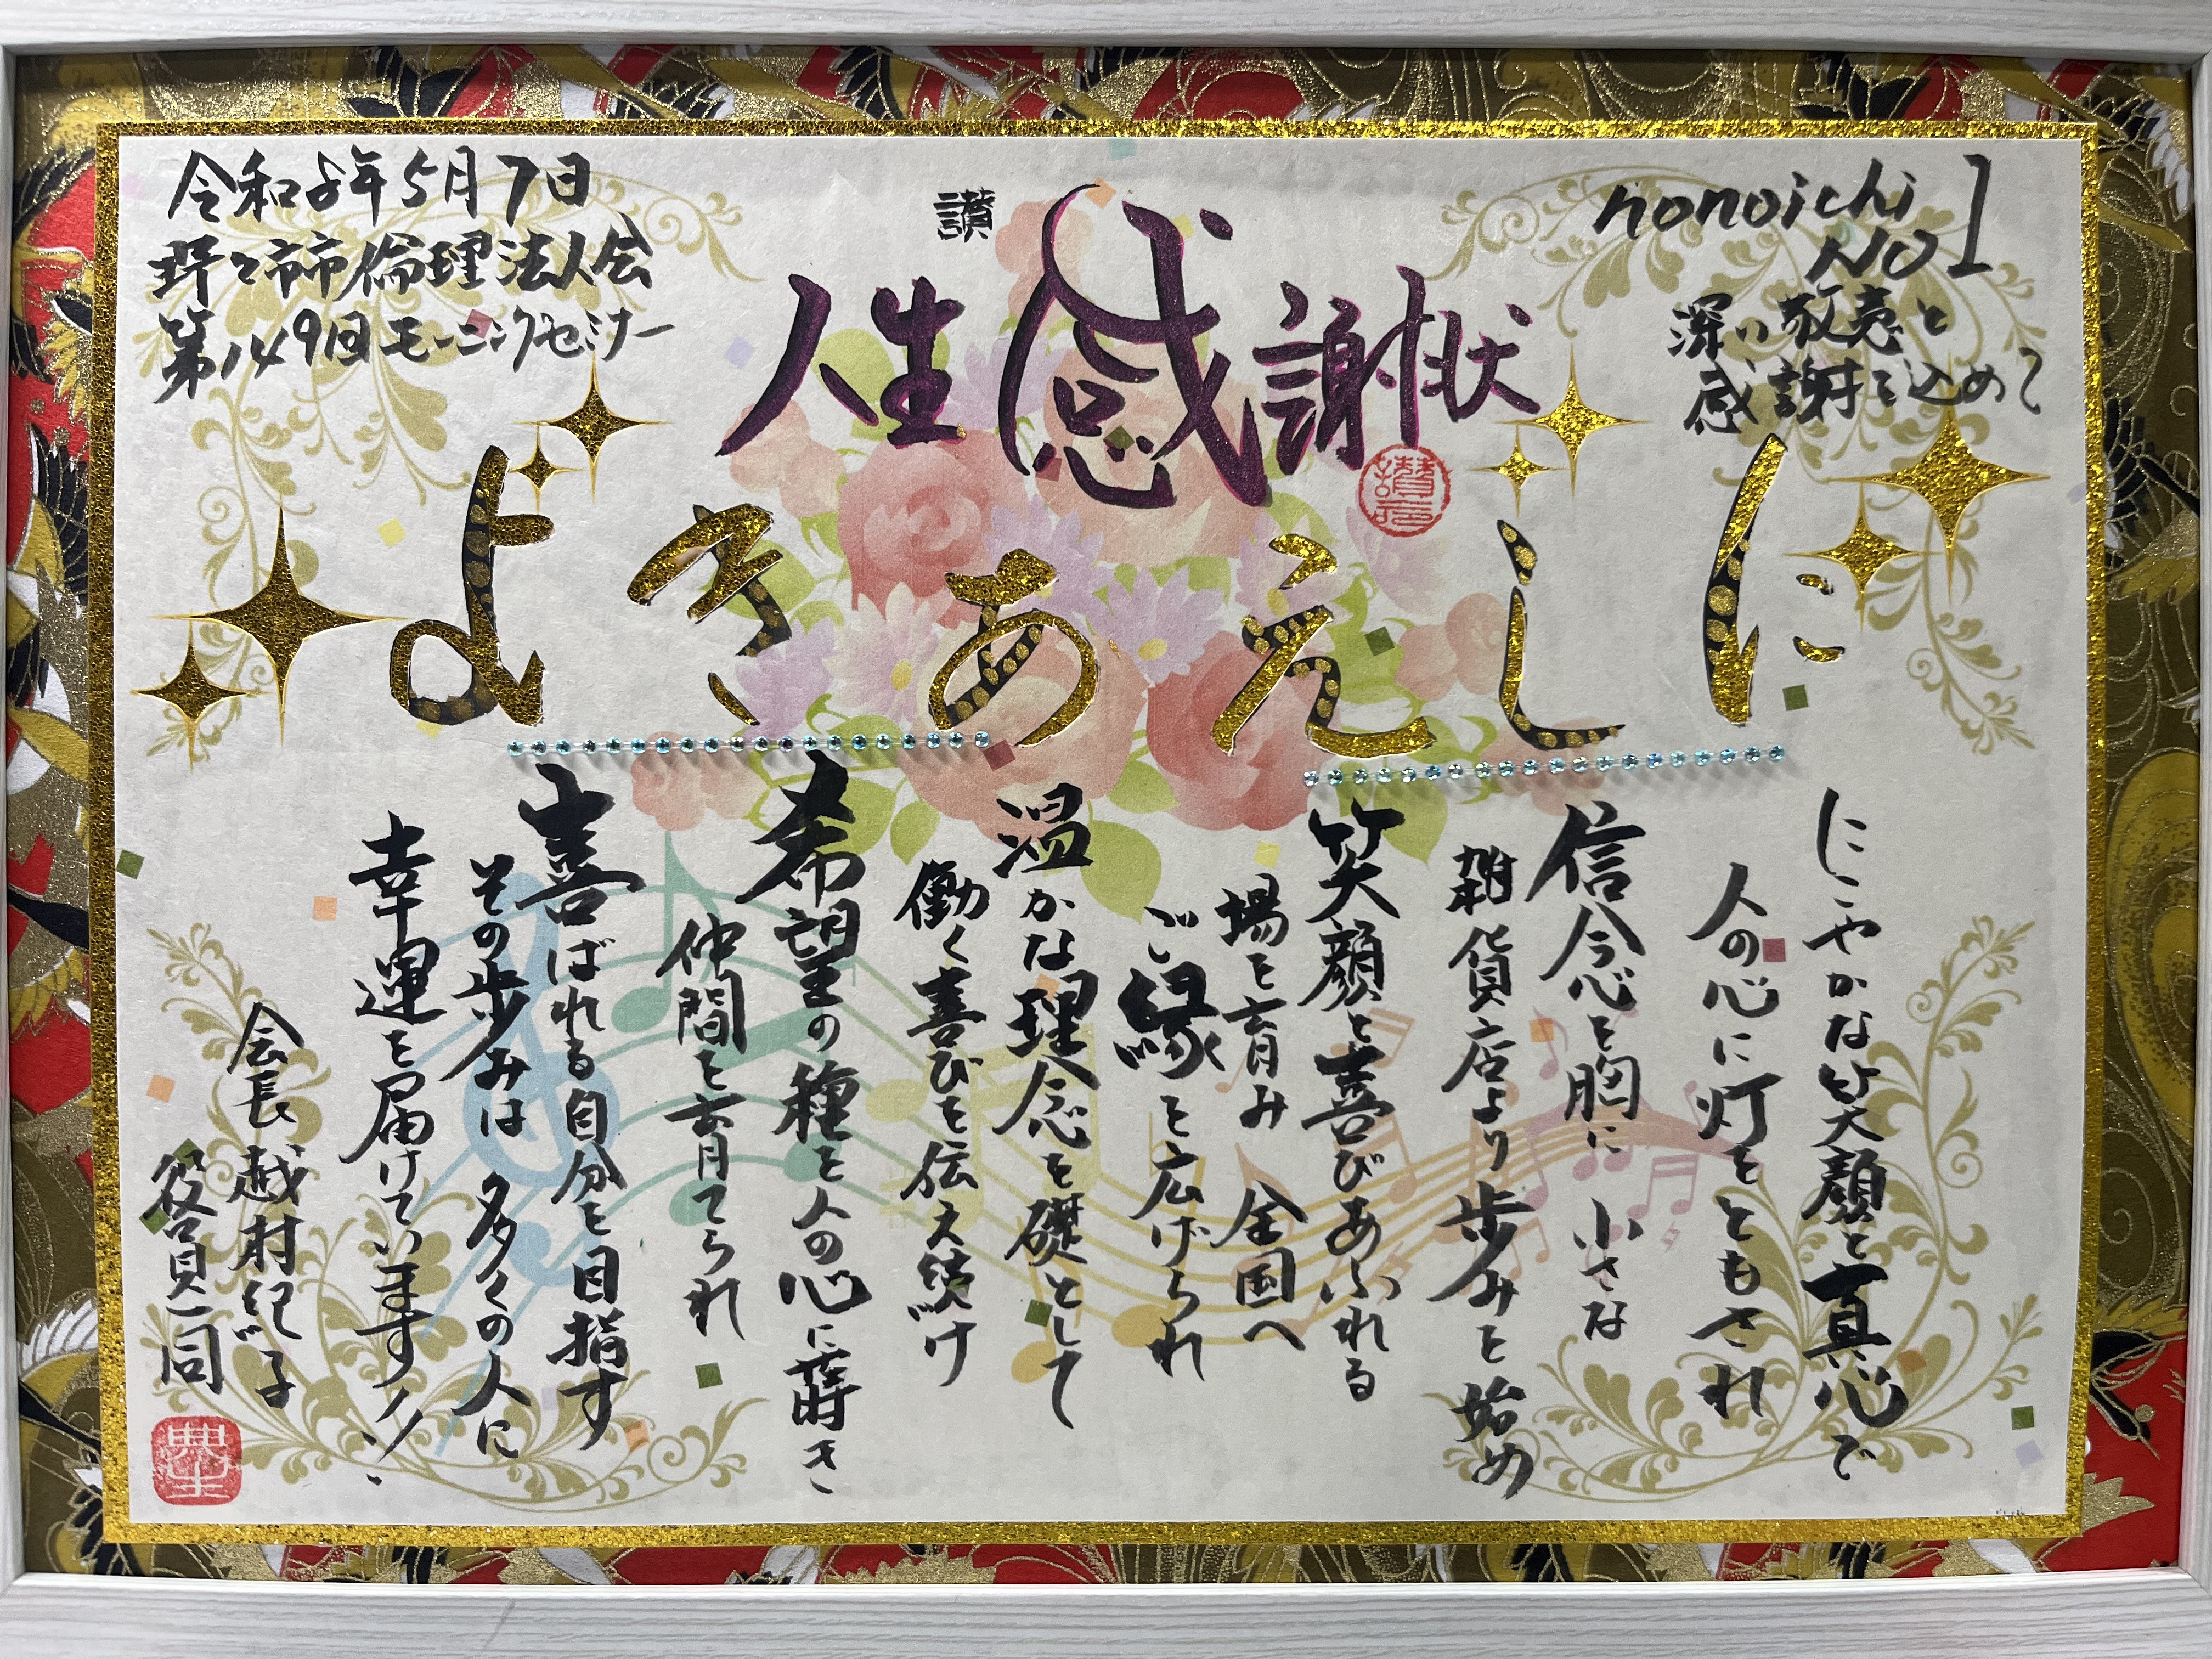 nonoichi
NO1
深い敬意と
感謝を込めて
讃
人生感謝状
にしえあきよ
にこやかな笑顔と真心で
人の心に灯をともされ
信念を胸に小さな
雑貨店より歩みを始め
笑顔と喜びあふれる
場を育み 全国へ
ご縁を広げられ
温かな理念を礎として
働く喜びを伝え続け
希望の種を人の心に蒔き
仲間を育てられ
喜ばれる自分を目指す
その歩みは 多くの人に
幸運を届けています!!
会長 越村紀子
役員一同
令和8年5月7日
野々市市倫理法人会
第149回モーニングセミナー